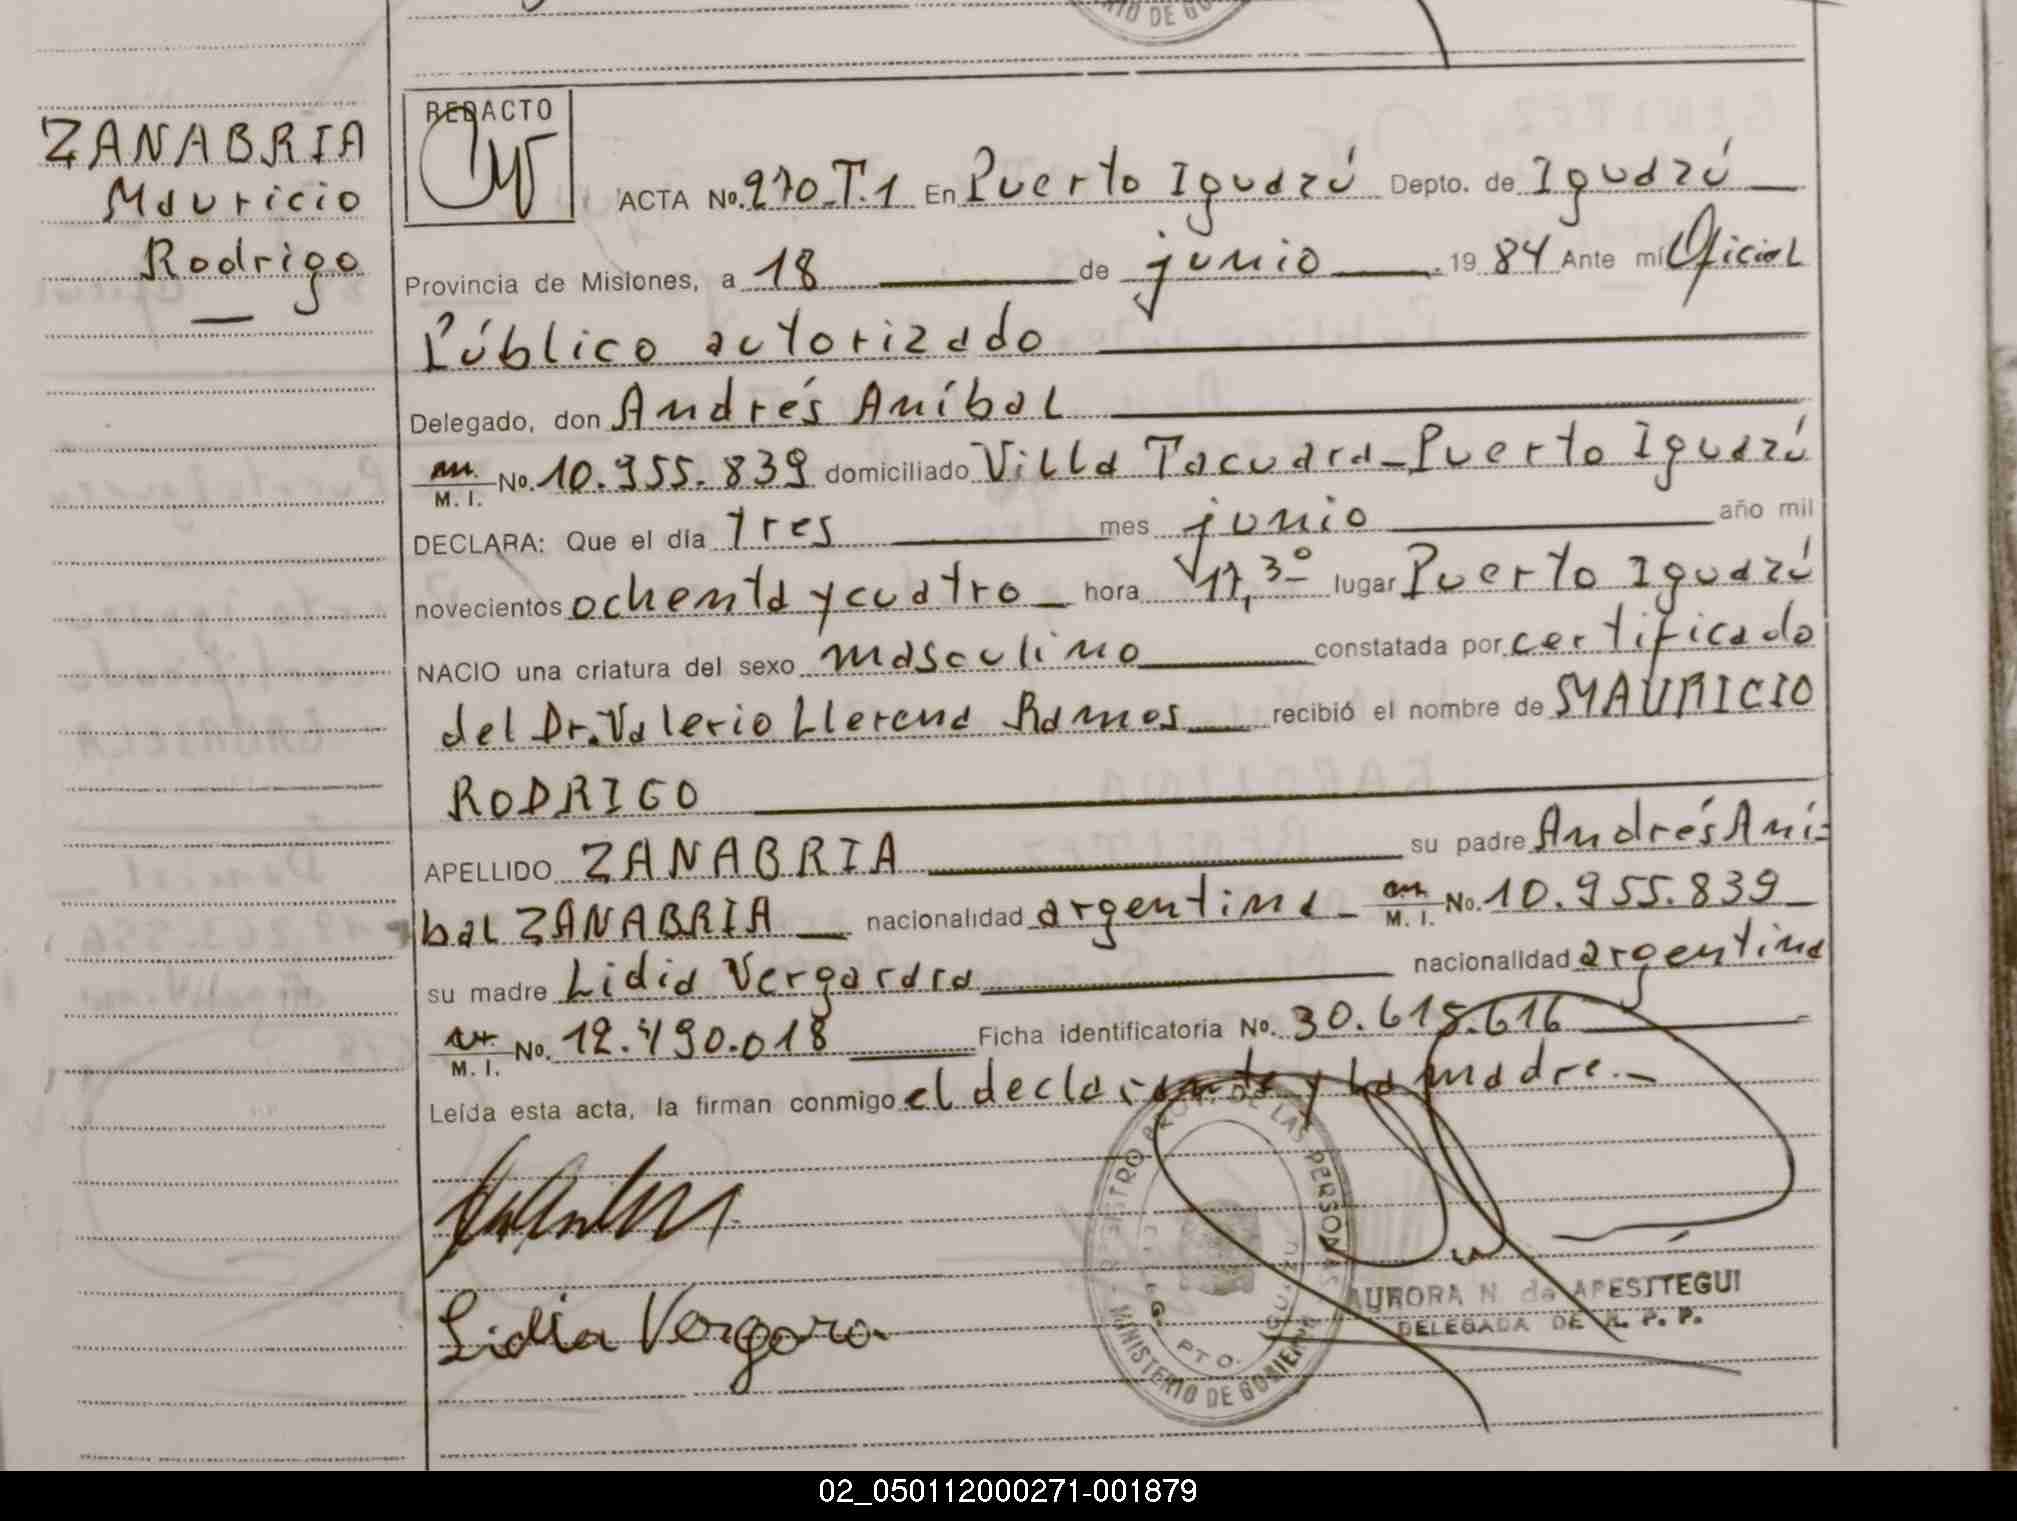 ERIO DE GO
ZANABRIA
Mauricio
Rodrigo
REDACTO
ACTA No. 270 T.1 En Puerto Iguazú Depto. de Iguazú
Provincia de Misiones, a 18 de junio 19 84 Ante mí Oficial
Público autorizado
Delegado, don Andrés Aníbal
M. I. No. 10.955.839 domiciliado Villa Tacuara-Puerto Iguazú
DECLARA: Que el día tres mes junio año mil
novecientos ochenta y cuatro hora 17,30 lugar Puerto Iguazú
NACIO una criatura del sexo masculino constatada por certificado
del Dr. Valerio Llerena Ramos recibió el nombre de MAURICIO
RODRIGO
APELLIDO ZANABRIA su padre Andrés Aní=
bal ZANABRIA nacionalidad argentina M. I. No. 10.955.839
su madre Lidia Vergara nacionalidad argentina
M. I. No. 12.490.018 Ficha identificatoria No. 30.615.616
Leída esta acta, la firman conmigo el declarante y la madre.
Lidia Vergara
REGISTRO PROV. DE LAS PERSONAS
MINISTERIO DE GOBIERNO
AURORA N. de APESTTEGUI
DELEGADA DE R. P. P.
02_050112000271-001879